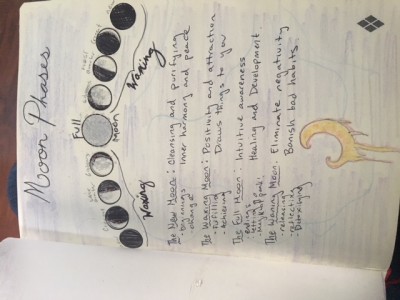 Moon Phases
Waxing
Full
Moon
Waning
The New Moon: Cleansing and purifying
- beginnings Inner harmony and peace
- change
The Waxing Moon: Positivity and attraction
- fulfilled Draws things to you
- achieving
The Full Moon: Intuitive awareness
- endings Healing and Development
- letting go
The Waning Moon: Eliminate negativity
- releasing Banish bad habits
- reflecting
- Detoxifying